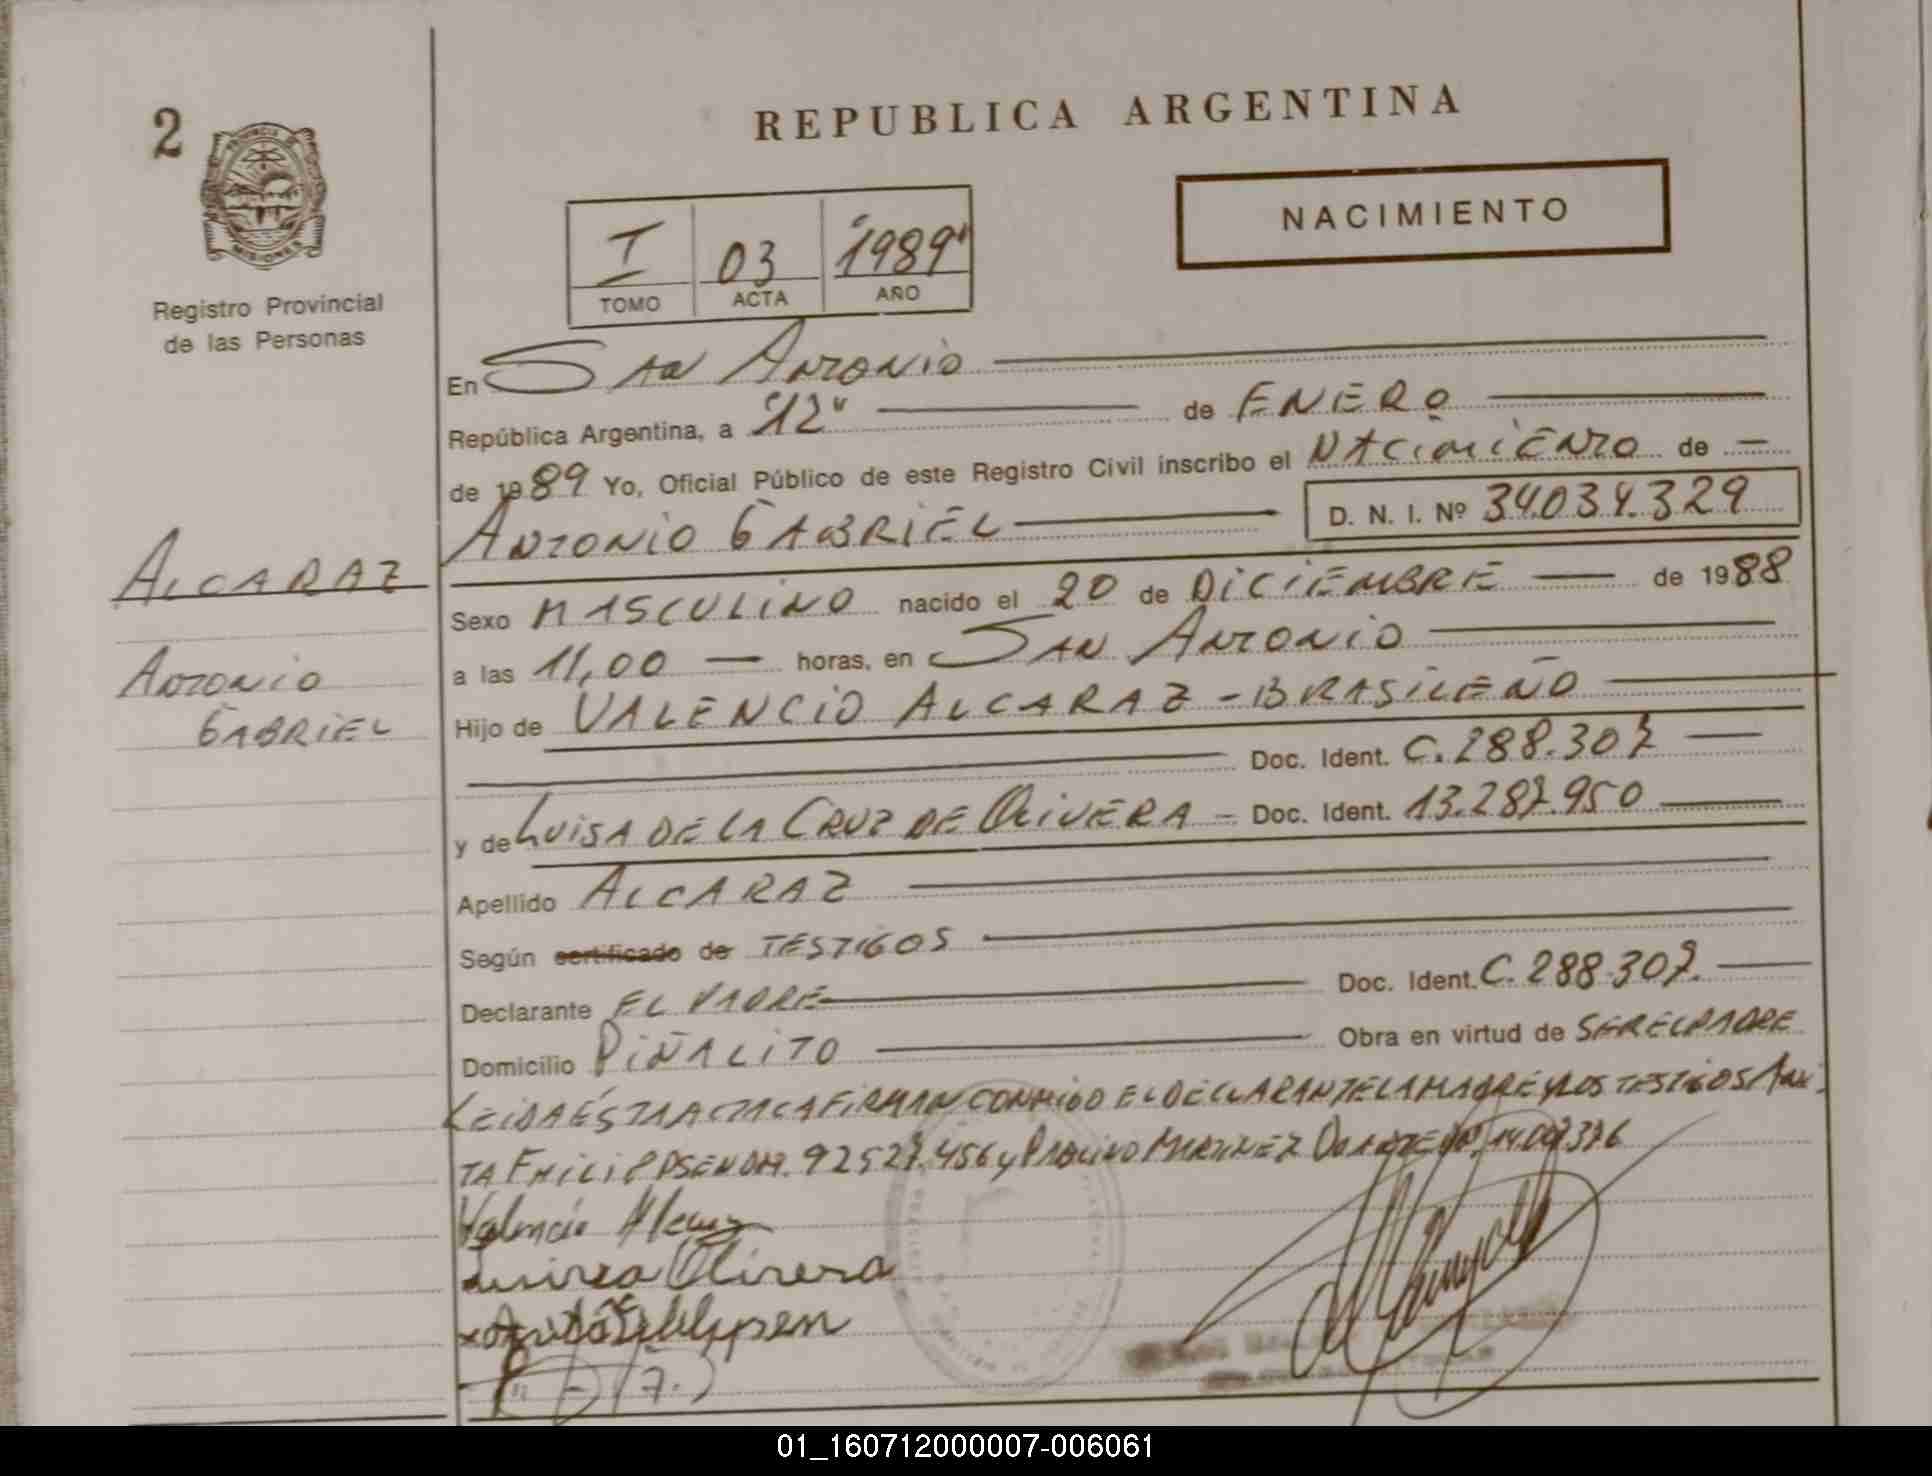 2
REPUBLICA ARGENTINA
PROVINCIA DE
MISIONES
Registro Provincial
de las Personas
NACIMIENTO
I 03 "1989"
TOMO ACTA AÑO
En SAN ANTONIO
República Argentina, a "12" de ENERO
de 1989 Yo, Oficial Público de este Registro Civil inscribo el NACIMIENTO de
ANTONIO GABRIEL D. N. I. Nº 34.034.329
ALCARAZ
ANTONIO
GABRIEL
Sexo MASCULINO nacido el 20 de DICIEMBRE de 1988
a las 11,00 horas, en SAN ANTONIO
Hijo de VALENCIO ALCARAZ - BRASILEÑO
Doc. Ident. C. 288.307
y de LUISA DE LA CRUZ DE OLIVERA - Doc. Ident. 13.287.950
Apellido ALCARAZ
Según certificado de TESTIGOS
Declarante EL PADRE Doc. Ident. C. 288.307.
Domicilio PIÑALITO Obra en virtud de SER EL PADRE
LEIDA ÉSTA ACTA LA FIRMAN CONMIGO EL DECLARANTE LA MADRE Y LOS TESTIGOS
TA 92527.456 y MARTINEZ 14.007.376
Valencio
Olivera
01_160712000007-006061